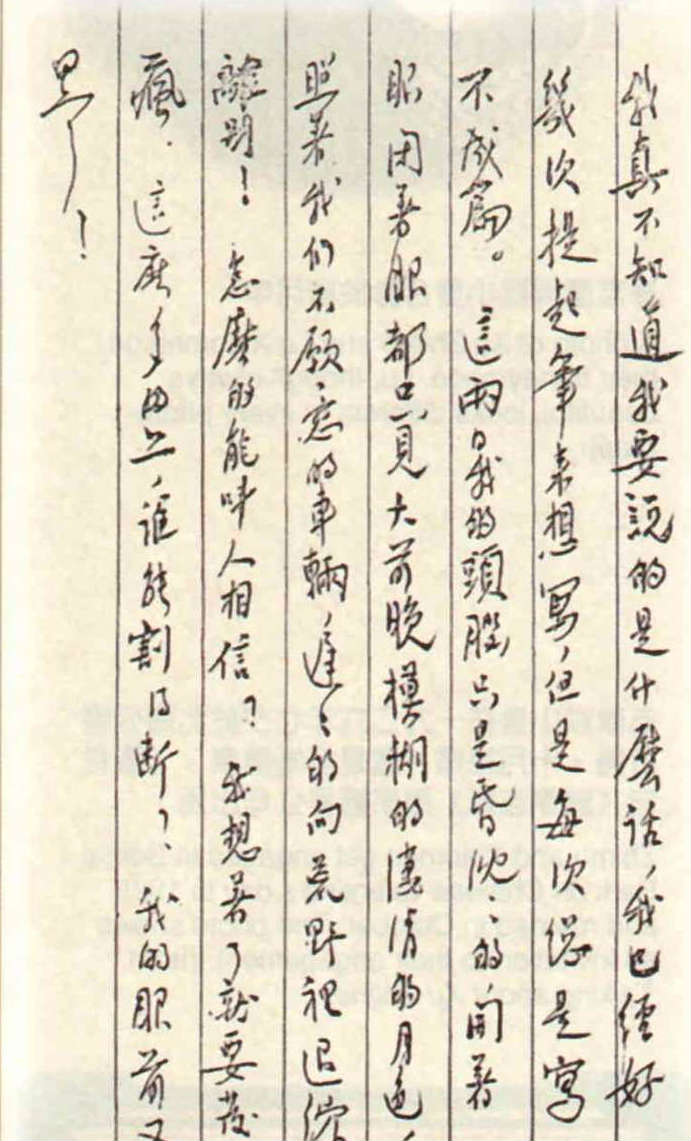 我真不知道我要說的是什麼話，我已經好
幾次提起筆來想寫，但是每次總是寫
不成篇。這兩日我的頭腦只是昏沈沈的，開著
眼閉著眼都只見大前晚模糊的淒清的月色，
照著我们不願意的車輛，遲遲的向荒野裡退縮
離別！怎麼的能呌人相信？我想著了就要發
瘋．這麼多的絲，誰能割得斷？我的眼前又
黑了！